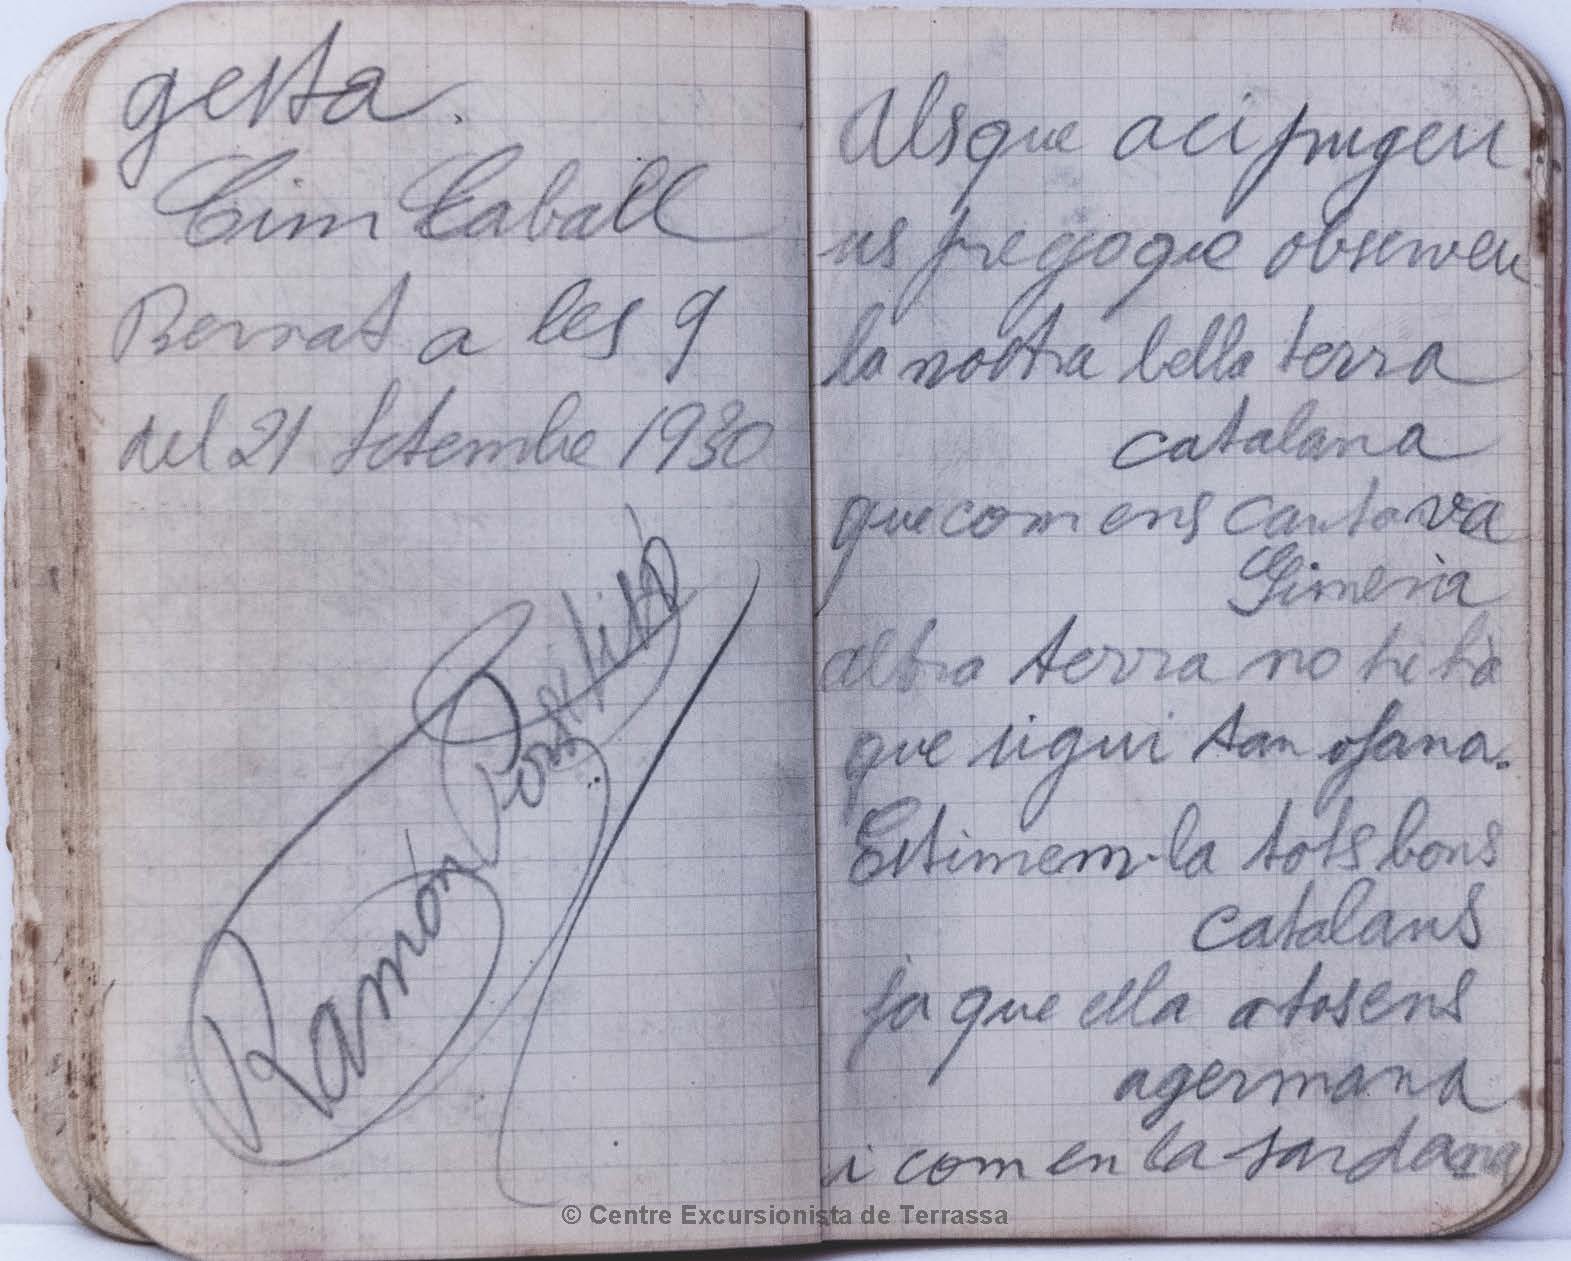 gesta.
Cim Caball
Bernat a les 9
del 21 Setembre 1930
Ramón
Als que aci pugeu
us prego que observeu
la nostra bella terra
catalana
que com ens cantava
Gimena
altra terra no hi ha
que sigui tan ofana.
Estimem-la tots bons
catalans
ja que ella a tots ens
agermana
i com en la sardana
© Centre Excursionista de Terrassa